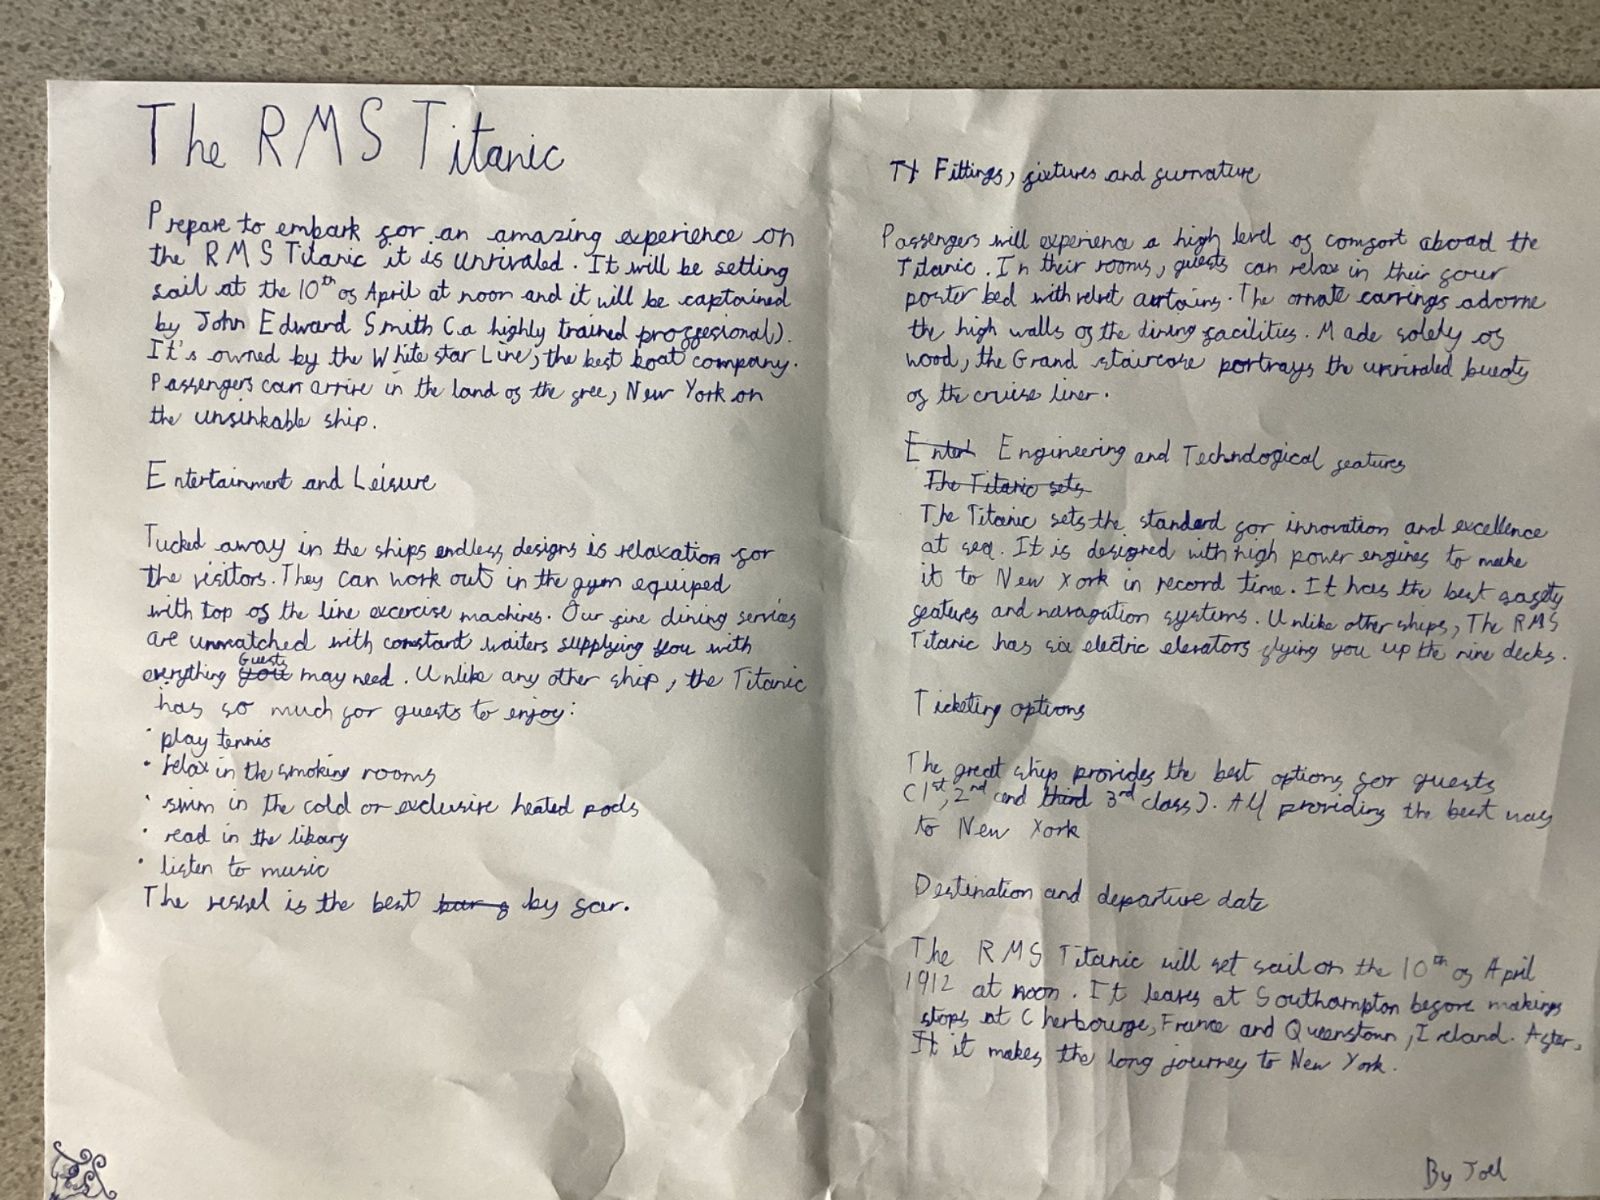 The RMS Titanic
Prepare to embark for an amazing experience on
the RMS Titanic it is unrivaled. It will be setting
sail at the 10th of April at noon and it will be captained
by John Edward Smith (a highly trained proffesional).
It's owned by the White star Line, the best boat company.
Passengers can arrive in the land of the free, New York on
the unsinkable ship.
Entertainment and Leisure
Tucked away in the ships endless designs is relaxation for
the visitors. They can work out in the gym equiped
with top of the line excercise machines. Our fine dining services
are unmatched with constant waiters supplying you with
everything you Guests may need. Unlike any other ship, the Titanic
has so much for guests to enjoy:
· play tennis
· relax in the smoking rooms
· swim in the cold or exclusive heated pools
· read in the libary
· listen to music
The vessel is the best by far.
Fittings, fixtures and furnature
Passengers will experience a high level of comfort aboad the
Titanic. In their rooms, guests can relax in their four
poster bed with velvet curtains. The ornate carvings adorne
the high walls of the dining facilities. Made solely of
wood, the Grand staircase portrays the unrivaled buedty
of the cruise liner.
Enter Engineering and Technological features
The Titanic sets
The Titanic sets the standard for innovation and excellence
at sea. It is designed with high power engines to make
it to New York in record time. It has the best safety
features and navagation systems. Unlike other ships, The RMS
Titanic has six electric elevators flying you up the nine decks.
Ticketing options
The great ship provides the best options for guests
(1st, 2nd and third 3rd class). All providing the best way
to New York
Destination and departure date
The RMS Titanic will set sail on the 10th of April
1912 at noon. It leaves at Southampton before making
stops at Cherbourge, France and Queenstown, Ireland. After,
It it makes the long journey to New York.
By Joel